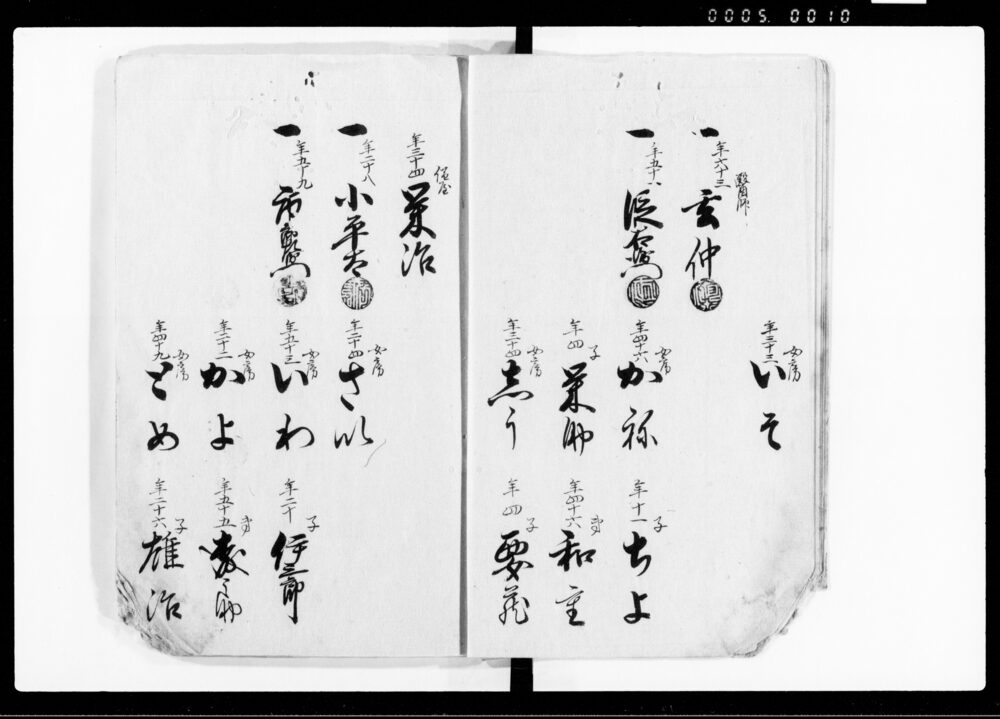 0005 0010
年三十三
女房
いそ
一
年六十三
醫師
玄仲
一
年四十六
女房
かね
年十一
子
ちよ
年四
子
栄助
年四十六
弟
和重
年三十四
女房
志う
年四
子
要蔵
年三十四
栄治
一
年二十八
小平太
年二十四
女房
さい
一
年五十九
年五十三
女房
いわ
年二十
子
伊三郎
年二十二
女房
かよ
年五十五
弟
年四十九
女房
とめ
年二十六
子
雄治